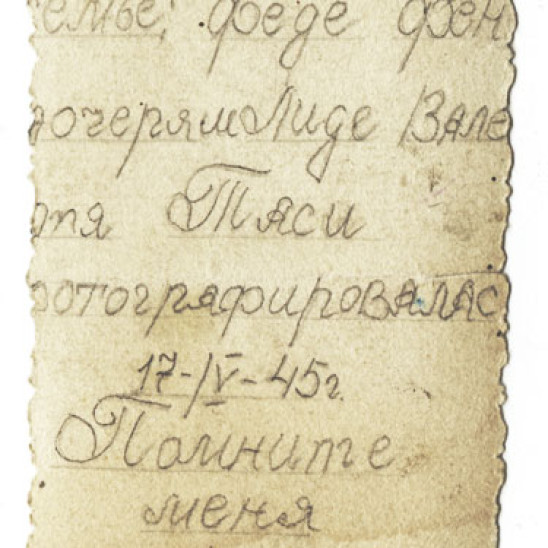 емье; феде фен
дочерям Лиде Вале
отя Тяси
фотографировалас
17-IV-45г.
Помните
меня